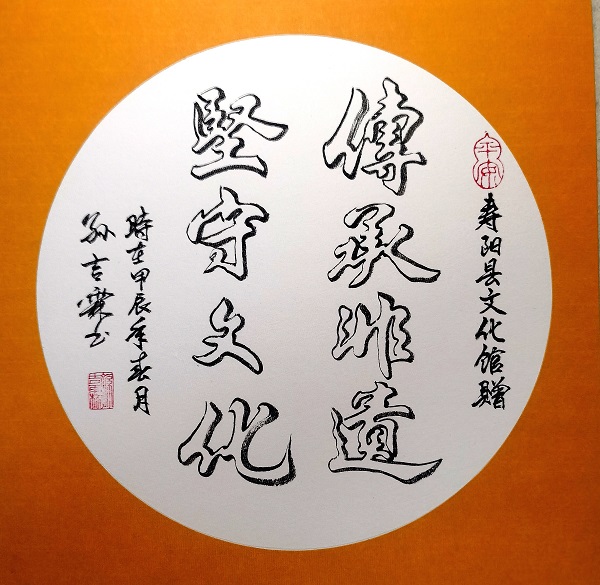 寿阳县文化馆赠
傳承非遺
堅守文化
時在甲辰年春月
孙吉霖书